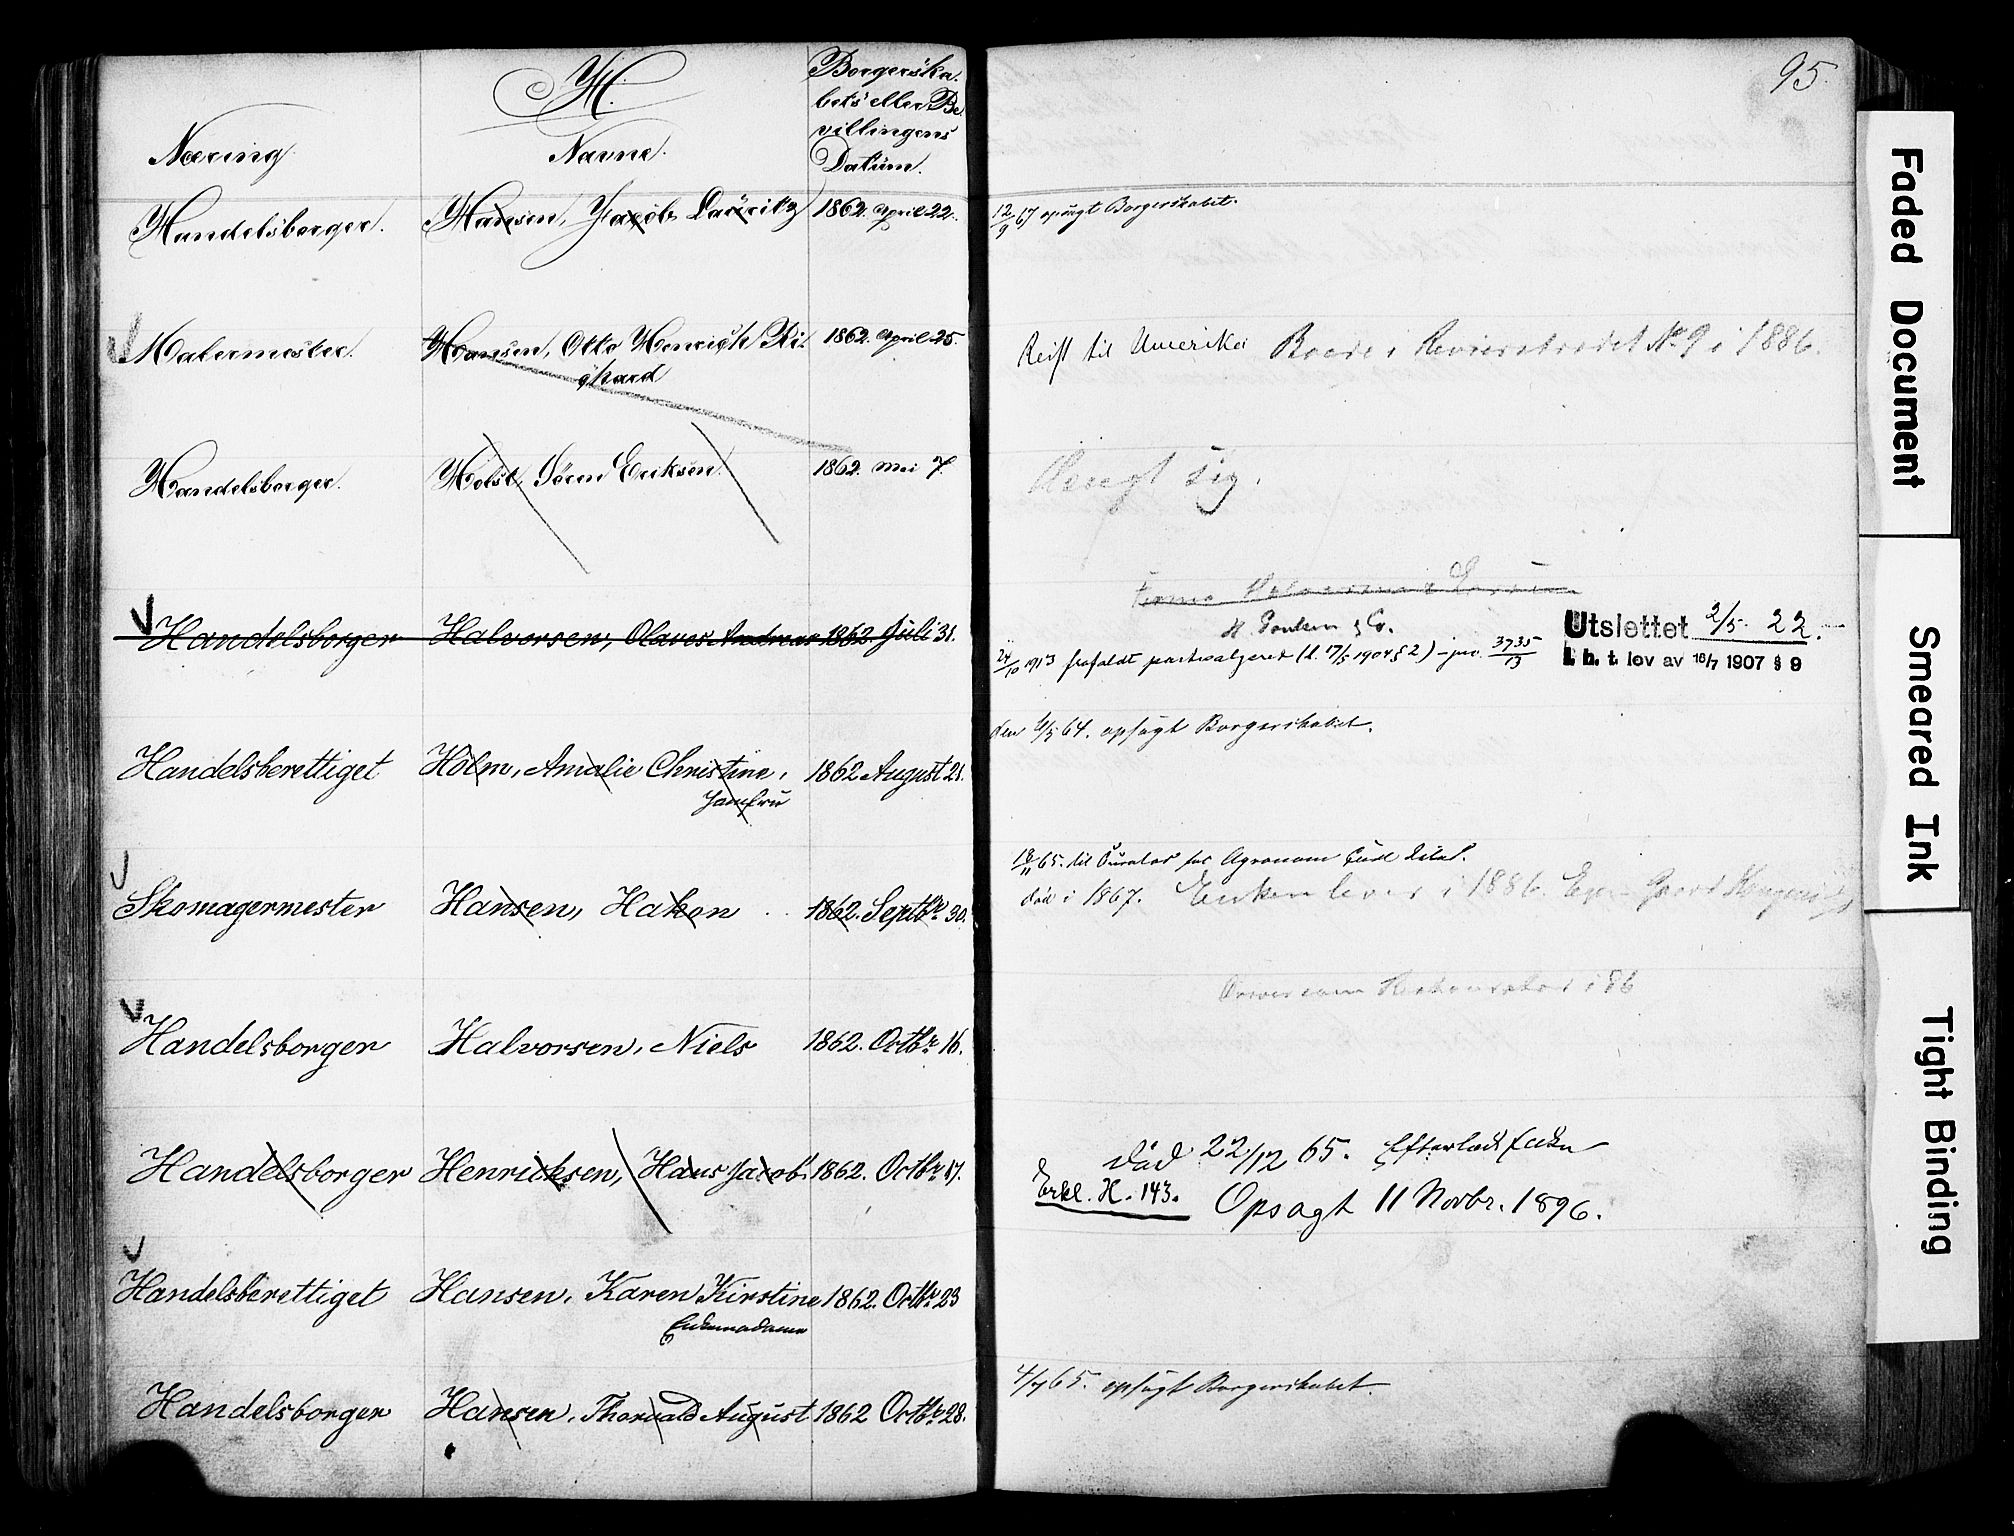 H.
95.
Næring.
Navne.
Borgerska-
bets eller Be-
villingens
Datum.
Handelsborger. Hansen, Jacob Lauritz 1862. April 22. 12/9 67 opsagt Borgerskabet.
Malermester. Hansen, Otto Henrich Ri- 1862. April 25. Reist til Amerika Boede i Revierstrædet No 9 i 1886.
chard
Handelsborger. Holst, Sören Eriksen. 1862. Mai 7. sig.
Firma Halvorsen &
H. Poulsen & Co.
Handelsborger Halvorsen, Olaves Andreas 1862. Juli 31. Utslettet 2/5 22.
24/10 1913 frafaldt (l. 17/5 1904 § 2) - jnr. 3735/13 i. h. t. lov av 16/7 1907 § 9
den 6/5 64. opsagt Borgerskabet.
Handelsberettiget Holm, Amalie Christine, 1862 August 21.
Jomfru
18/11 65. til Curator for Agronom
Skomagermester Hansen, Hakon 1862. Septbr. 30. død i 1867. Enken lever i 1886.
i 86
Handelsborger Halvorsen, Niels 1862. Octbr. 16.
død 22/12 65. Efterladt Enke
Handelsborger Henricksen, Hans Jacob. 1862. Octbr. 17. Erkl. H. 143. Opsagt 11 Novbr. 1896.
Handelsberettiget Hansen, Karen Kirstine 1862. Octbr. 23
Enkemadame
4/7 65. opsagt Borgerskabet.
Handelsborger Hansen, Thorvald August 1862 Octbr. 28.
Faded Document
Smeared Ink
Tight Binding